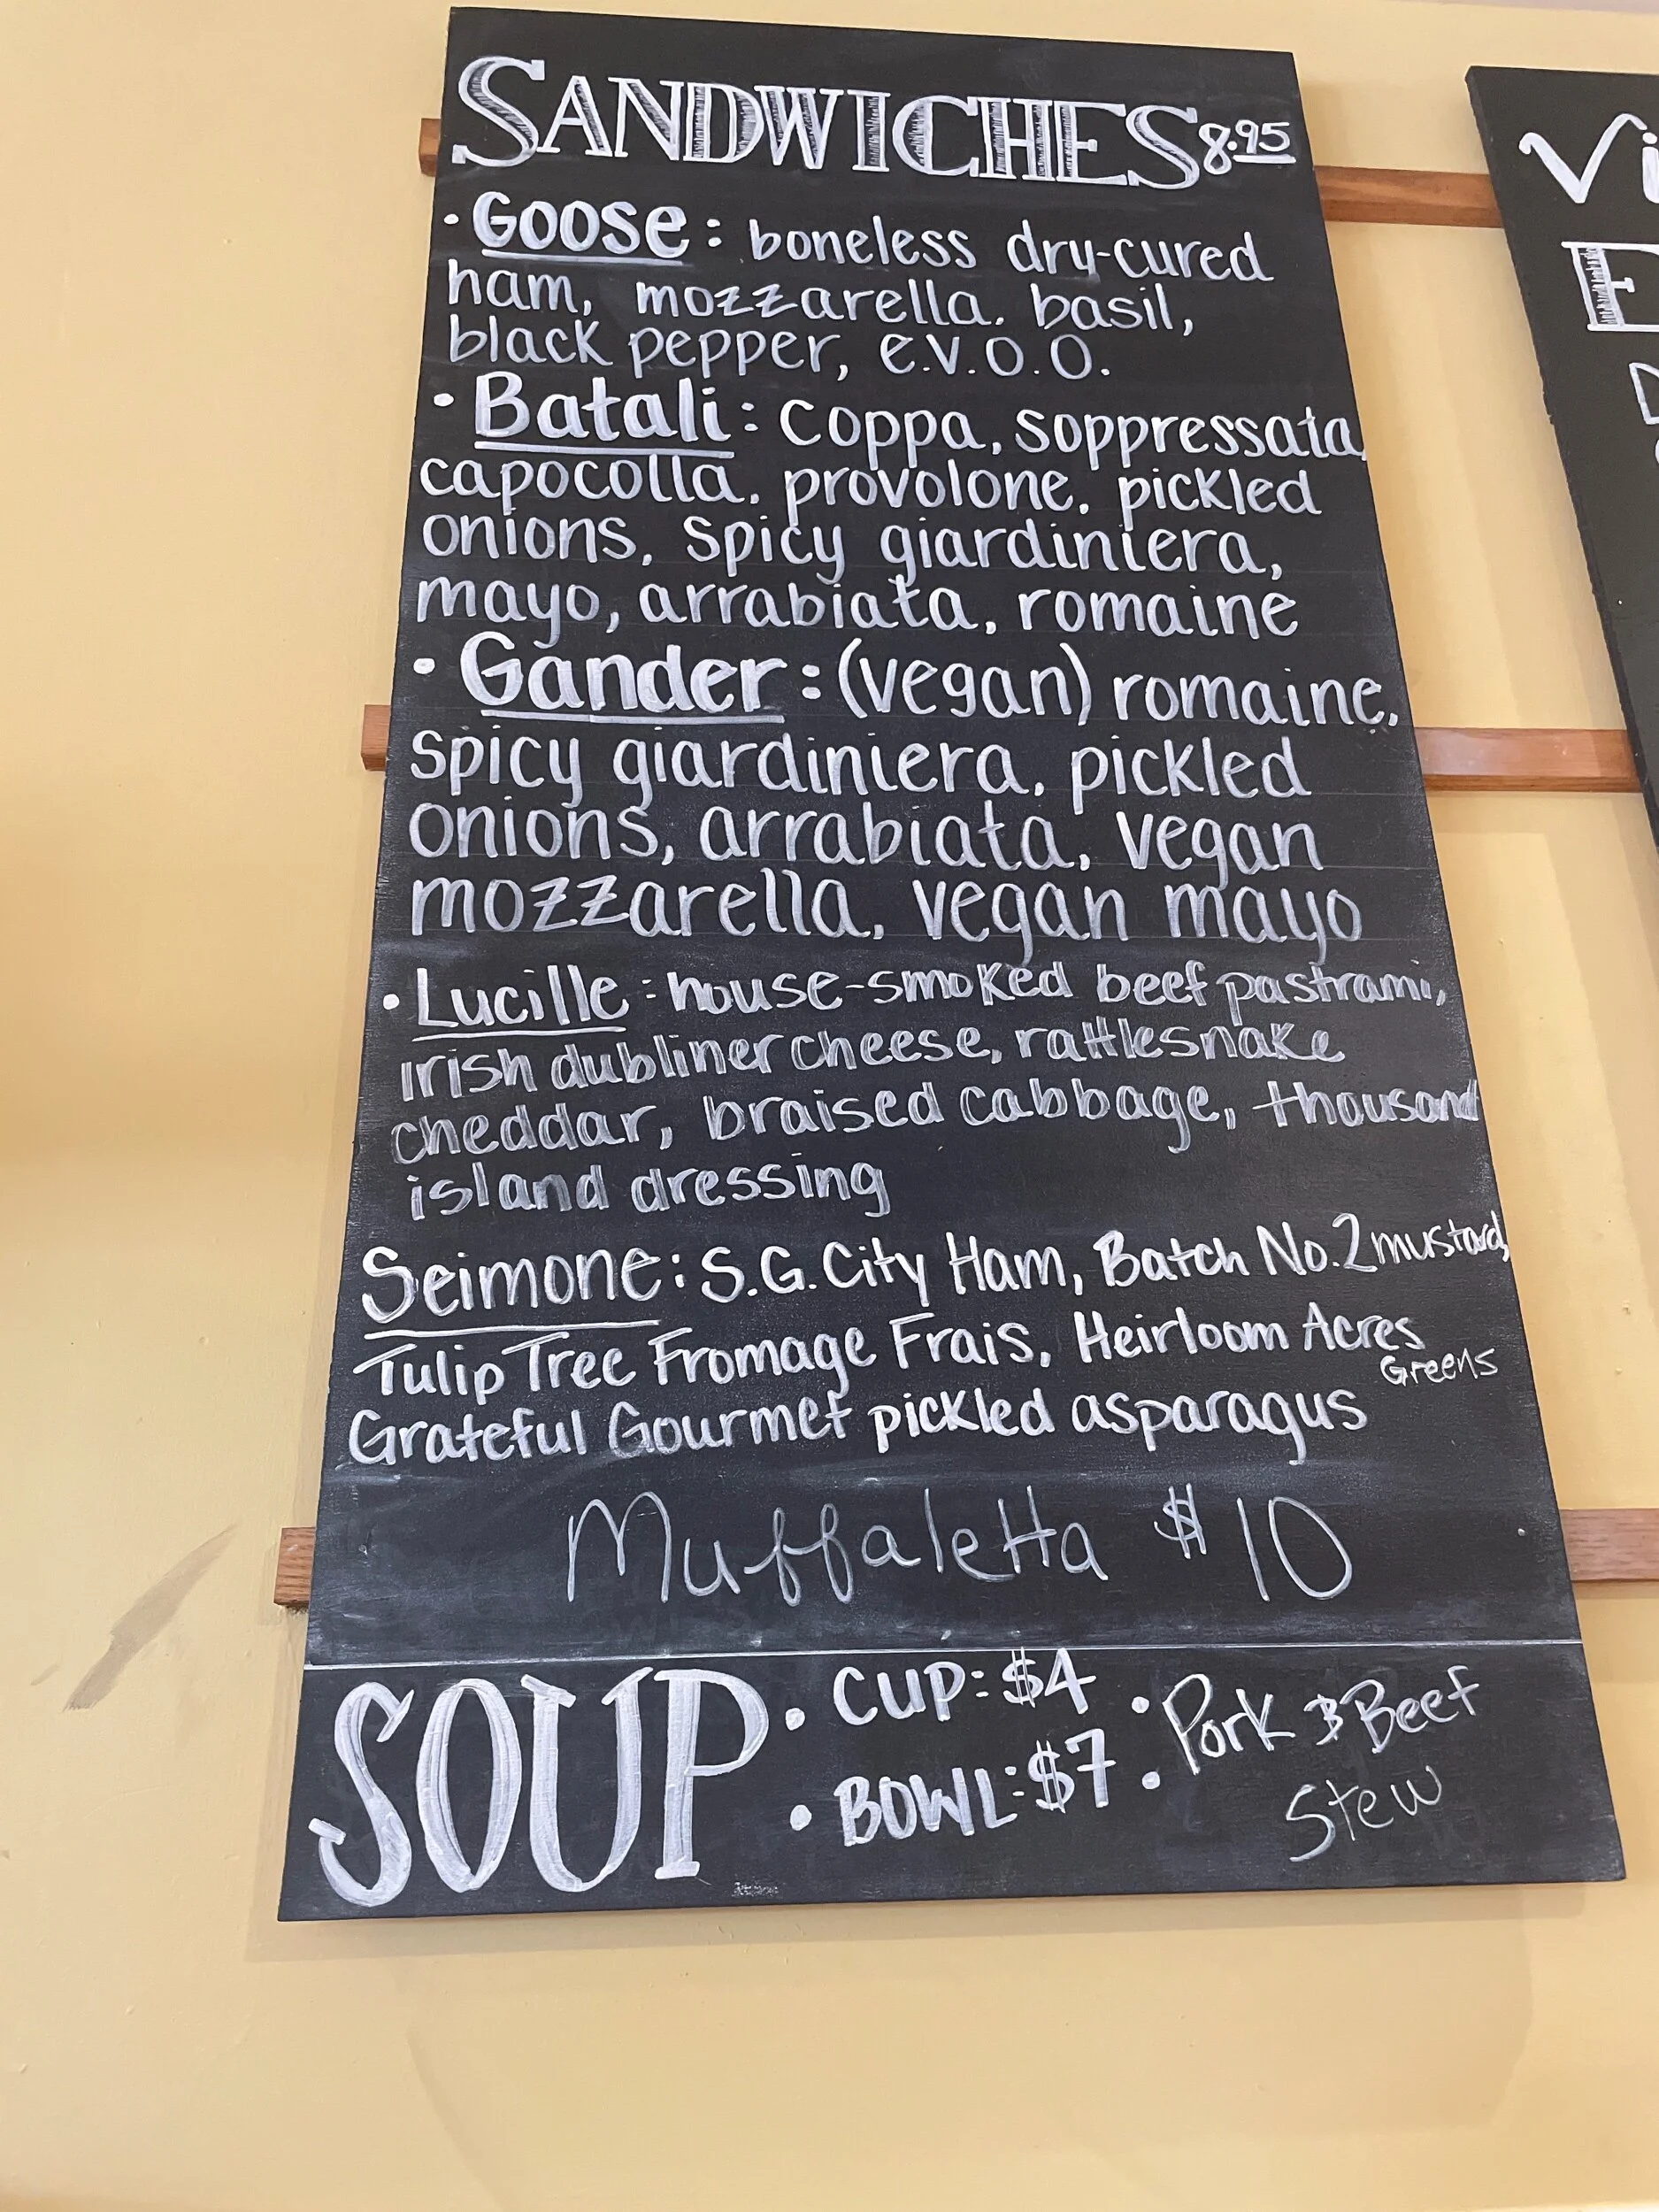 SANDWICHES 8.95
• GOOSE: boneless dry-cured
ham, mozzarella, basil,
black pepper, e.v.o.o.
• Batali: coppa, soppressata,
capocolla, provolone, pickled
onions, spicy giardiniera,
mayo, arrabiata, romaine
• Gander: (vegan) romaine,
spicy giardiniera, pickled
onions, arrabiata, vegan
mozzarella, vegan mayo
• Lucille: house-smoked beef pastrami,
irish dubliner cheese, rattlesnake
cheddar, braised cabbage, thousand
island dressing
Seimone: S.G. City Ham, Batch No. 2 mustard,
Tulip Tree Fromage Frais, Heirloom Acres
Greens
Grateful Gourmet pickled asparagus
Muffaletta $10
SOUP
• CUP: $4
• BOWL: $7
• Pork & Beef
• Stew
Vi
E